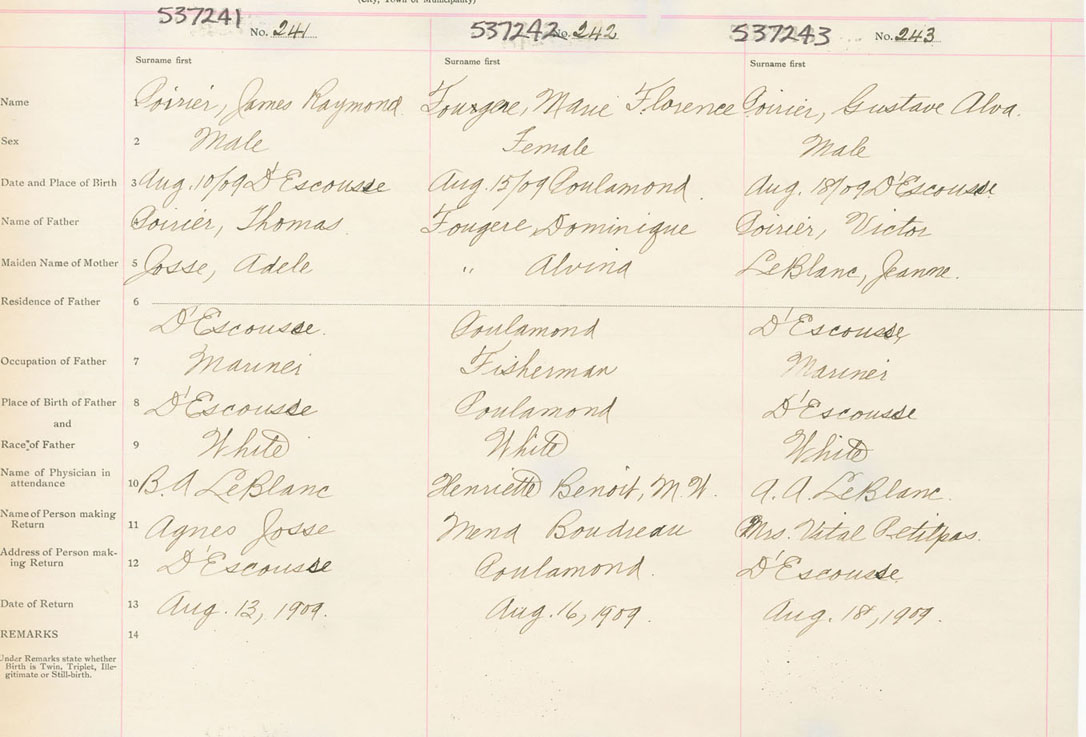 (City, Town or Municipality)
537241 No. 241 537242 No. 242 537243 No. 243
Surname first Surname first Surname first
Name 1 Poirier, James Raymond. Fougere, Marie Florence Poirier, Gustave Alva.
Sex 2 Male Female Male
Date and Place of Birth 3 Aug. 10/09 D'Escousse Aug. 15/09 Poulamond. Aug. 18/09 D'Escousse.
Name of Father 4 Poirier, Thomas. Fougere, Dominique Poirier, Victor
Maiden Name of Mother 5 Josse, Adele " Alvina LeBlanc, Jeanne.
Residence of Father 6
D'Escousse. Poulamond D'Escousse
Occupation of Father 7 Mariner Fisherman Mariner
Place of Birth of Father 8 D'Escousse Poulamond D'Escousse
and
Race of Father 9 White White White
Name of Physician in
attendance 10 B. A LeBlanc Henriette Benoit, M.W. A. A. LeBlanc.
Name of Person making
Return 11 Agnes Josse Mend Boudreau Mrs. Vital Petitpas.
Address of Person mak-
ing Return 12 D'Escousse Poulamond. D'Escousse
Date of Return 13 Aug. 13, 1909. Aug. 16, 1909. Aug. 18, 1909.
REMARKS 14
Under Remarks state whether
Birth is Twin, Triplet, Ille-
gitimate or Still-birth.